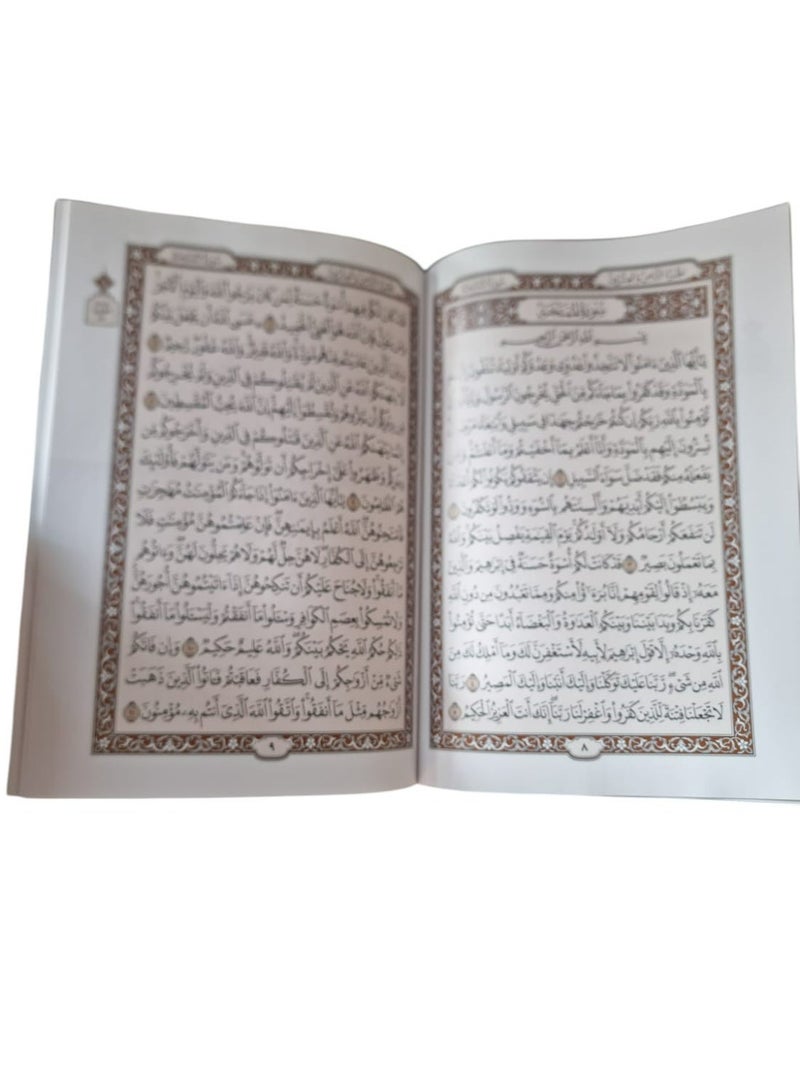 الجزء الثامن والعشرون
سورة الممتحنة
سُورَةُ المُمْتَحنَةِ
بِسْمِ ٱللَّهِ ٱلرَّحْمَٰنِ ٱلرَّحِيمِ
يَٰٓأَيُّهَا ٱلَّذِينَ ءَامَنُوا۟ لَا تَتَّخِذُوا۟ عَدُوِّى وَعَدُوَّكُمْ أَوْلِيَآءَ تُلْقُونَ إِلَيْهِم
بِٱلْمَوَدَّةِ وَقَدْ كَفَرُوا۟ بِمَا جَآءَكُم مِّنَ ٱلْحَقِّ يُخْرِجُونَ ٱلرَّسُولَ وَإِيَّاكُمْ أَن
تُؤْمِنُوا۟ بِٱللَّهِ رَبِّكُمْ إِن كُنتُمْ خَرَجْتُمْ جِهَٰدًا فِى سَبِيلِى وَٱبْتِغَآءَ مَرْضَاتِى
تُسِرُّونَ إِلَيْهِم بِٱلْمَوَدَّةِ وَأَنَا۠ أَعْلَمُ بِمَآ أَخْفَيْتُمْ وَمَآ أَعْلَنتُمْ وَمَن
يَفْعَلْهُ مِنكُمْ فَقَدْ ضَلَّ سَوَآءَ ٱلسَّبِيلِ ١ إِن يَثْقَفُوكُمْ يَكُونُوا۟ لَكُمْ أَعْدَآءً
وَيَبْسُطُوٓا۟ إِلَيْكُمْ أَيْدِيَهُمْ وَأَلْسِنَتَهُم بِٱلسُّوٓءِ وَوَدُّوا۟ لَوْ تَكْفُرُونَ ٢
لَن تَنفَعَكُمْ أَرْحَامُكُمْ وَلَآ أَوْلَٰدُكُمْ يَوْمَ ٱلْقِيَٰمَةِ يَفْصِلُ بَيْنَكُمْ وَٱللَّهُ
بِمَا تَعْمَلُونَ بَصِيرٌ ٣ قَدْ كَانَتْ لَكُمْ أُسْوَةٌ حَسَنَةٌ فِىٓ إِبْرَٰهِيمَ وَٱلَّذِينَ
مَعَهُۥٓ إِذْ قَالُوا۟ لِقَوْمِهِمْ إِنَّا بُرَءَٰٓؤُا۟ مِنكُمْ وَمِمَّا تَعْبُدُونَ مِن دُونِ ٱللَّهِ
كَفَرْنَا بِكُمْ وَبَدَا بَيْنَنَا وَبَيْنَكُمُ ٱلْعَدَٰوَةُ وَٱلْبَغْضَآءُ أَبَدًا حَتَّىٰ تُؤْمِنُوا۟
بِٱللَّهِ وَحْدَهُۥٓ إِلَّا قَوْلَ إِبْرَٰهِيمَ لِأَبِيهِ لَأَسْتَغْفِرَنَّ لَكَ وَمَآ أَمْلِكُ لَكَ مِنَ
ٱللَّهِ مِن شَىْءٍ رَّبَّنَا عَلَيْكَ تَوَكَّلْنَا وَإِلَيْكَ أَنَبْنَا وَإِلَيْكَ ٱلْمَصِيرُ ٤ رَبَّنَا
لَا تَجْعَلْنَا فِتْنَةً لِّلَّذِينَ كَفَرُوا۟ وَٱغْفِرْ لَنَا رَبَّنَآ إِنَّكَ أَنتَ ٱلْعَزِيزُ ٱلْحَكِيمُ ٥
٨
لَقَدْ كَانَ لَكُمْ فِيهِمْ أُسْوَةٌ حَسَنَةٌ لِّمَن كَانَ يَرْجُوا۟ ٱللَّهَ وَٱلْيَوْمَ ٱلْءَاخِرَ
وَمَن يَتَوَلَّ فَإِنَّ ٱللَّهَ هُوَ ٱلْغَنِىُّ ٱلْحَمِيدُ ٦ عَسَى ٱللَّهُ أَن يَجْعَلَ بَيْنَكُمْ
وَبَيْنَ ٱلَّذِينَ عَادَيْتُم مِّنْهُم مَّوَدَّةً وَٱللَّهُ قَدِيرٌ وَٱللَّهُ غَفُورٌ رَّحِيمٌ ٧
لَّا يَنْهَىٰكُمُ ٱللَّهُ عَنِ ٱلَّذِينَ لَمْ يُقَٰتِلُوكُمْ فِى ٱلدِّينِ وَلَمْ يُخْرِجُوكُم
مِّن دِيَٰرِكُمْ أَن تَبَرُّوهُمْ وَتُقْسِطُوٓا۟ إِلَيْهِمْ إِنَّ ٱللَّهَ يُحِبُّ ٱلْمُقْسِطِينَ ٨
إِنَّمَا يَنْهَىٰكُمُ ٱللَّهُ عَنِ ٱلَّذِينَ قَٰتَلُوكُمْ فِى ٱلدِّينِ وَأَخْرَجُوكُم مِّن
دِيَٰرِكُمْ وَظَٰهَرُوا۟ عَلَىٰٓ إِخْرَاجِكُمْ أَن تَوَلَّوْهُمْ وَمَن يَتَوَلَّهُمْ فَأُو۟لَٰٓئِكَ
هُمُ ٱلظَّٰلِمُونَ ٩ يَٰٓأَيُّهَا ٱلَّذِينَ ءَامَنُوٓا۟ إِذَا جَآءَكُمُ ٱلْمُؤْمِنَٰتُ مُهَٰجِرَٰتٍ
فَٱمْتَحِنُوهُنَّ ٱللَّهُ أَعْلَمُ بِإِيمَٰنِهِنَّ فَإِنْ عَلِمْتُمُوهُنَّ مُؤْمِنَٰتٍ فَلَا
تَرْجِعُوهُنَّ إِلَى ٱلْكُفَّارِ لَا هُنَّ حِلٌّ لَّهُمْ وَلَا هُمْ يَحِلُّونَ لَهُنَّ وَءَاتُوهُم
مَّآ أَنفَقُوا۟ وَلَا جُنَاحَ عَلَيْكُمْ أَن تَنكِحُوهُنَّ إِذَآ ءَاتَيْتُمُوهُنَّ أُجُورَهُنَّ
وَلَا تُمْسِكُوا۟ بِعِصَمِ ٱلْكَوَافِرِ وَسْـَٔلُوا۟ مَآ أَنفَقْتُمْ وَلْيَسْـَٔلُوا۟ مَآ أَنفَقُوا۟
ذَٰلِكُمْ حُكْمُ ٱللَّهِ يَحْكُمُ بَيْنَكُمْ وَٱللَّهُ عَلِيمٌ حَكِيمٌ ١٠ وَإِن فَاتَكُمْ
شَىْءٌ مِّنْ أَزْوَٰجِكُمْ إِلَى ٱلْكُفَّارِ فَعَاقَبْتُمْ فَـَٔاتُوا۟ ٱلَّذِينَ ذَهَبَتْ
أَزْوَٰجُهُم مِّثْلَ مَآ أَنفَقُوا۟ وَٱتَّقُوا۟ ٱللَّهَ ٱلَّذِىٓ أَنتُم بِهِۦ مُؤْمِنُونَ ١١
٩